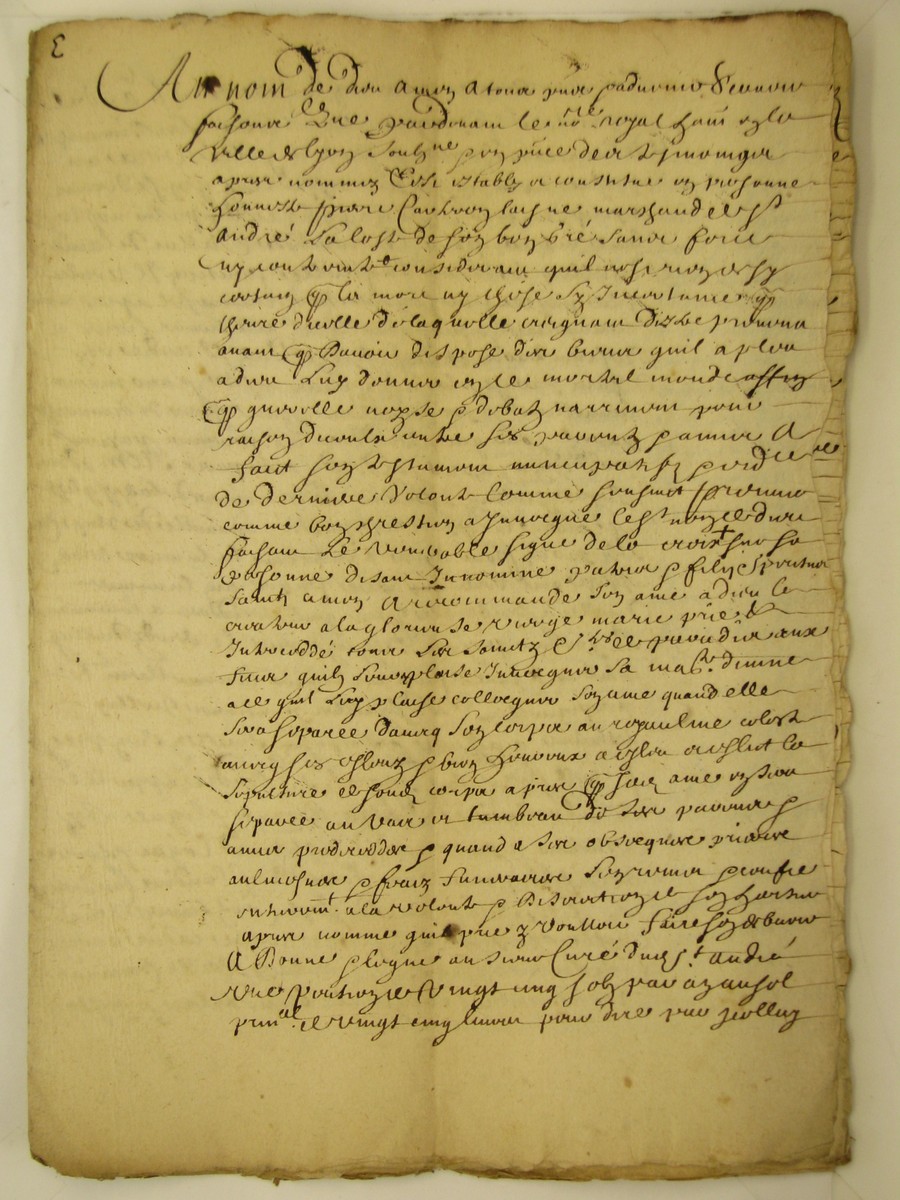 E
Au nom de dieu amen a tous pnts et advenir scavoir
faisons Que pardevant le nore royal
ville de lyon soubzne et en pnce des tesmoings
apres nommez estably et constitue en personne
honneste pierre laisne marchand de st
andré la coste de son bon gré sans force
ny contrainte considerant quil nest rien de sy
certain que la mort ny chose sy Incertaine que
lheure dicelle de laquelle craignant destre prevenu
avant que davoir dispose des biens quil a pleu
a dieu luy donner en ce mortel monde affin
que quereelle noyse et debatz narrivent pour
raison diceulx entre ses parents et amis A
faict son testament nuncupatif et ordce
de derniere volonte comme sensuit premier
comme bon chrestien a Invoque le st nom de dieu
faisant le venerable signe de la croix + sur sa
personne disant In nomine patris et filij et spiritus
sancti amen a recommande son ame a dieu le
createur a la glorieuse vierge marie prie et
Intercedde tous les saincts et stes de paradis aux
fins quilz leur plaise Invoquer sa maté divine
a ce quil luy plaise collocquer son ame quand elle
sera separée davecq son corps au royaulme celeste
avecq les esleuz et bien heureux a esleu et eslict la
sepulture de sondt corps apres que sad ame en sera
separée au vas et tumbeau de ses parents et
amis predeceddes et quand a ses obseques prieres
aulmosnes et frais funeraires sen remet et confie
entierement a la volonte et discretion de son heritier
apres nomme quil prie voulloir faire son debvoir
A donne et legue au sieur Curé dud st andré
une pention de vingt cinq solz par an au sol
prinal de vingt cinq livres pour dire par icelluy